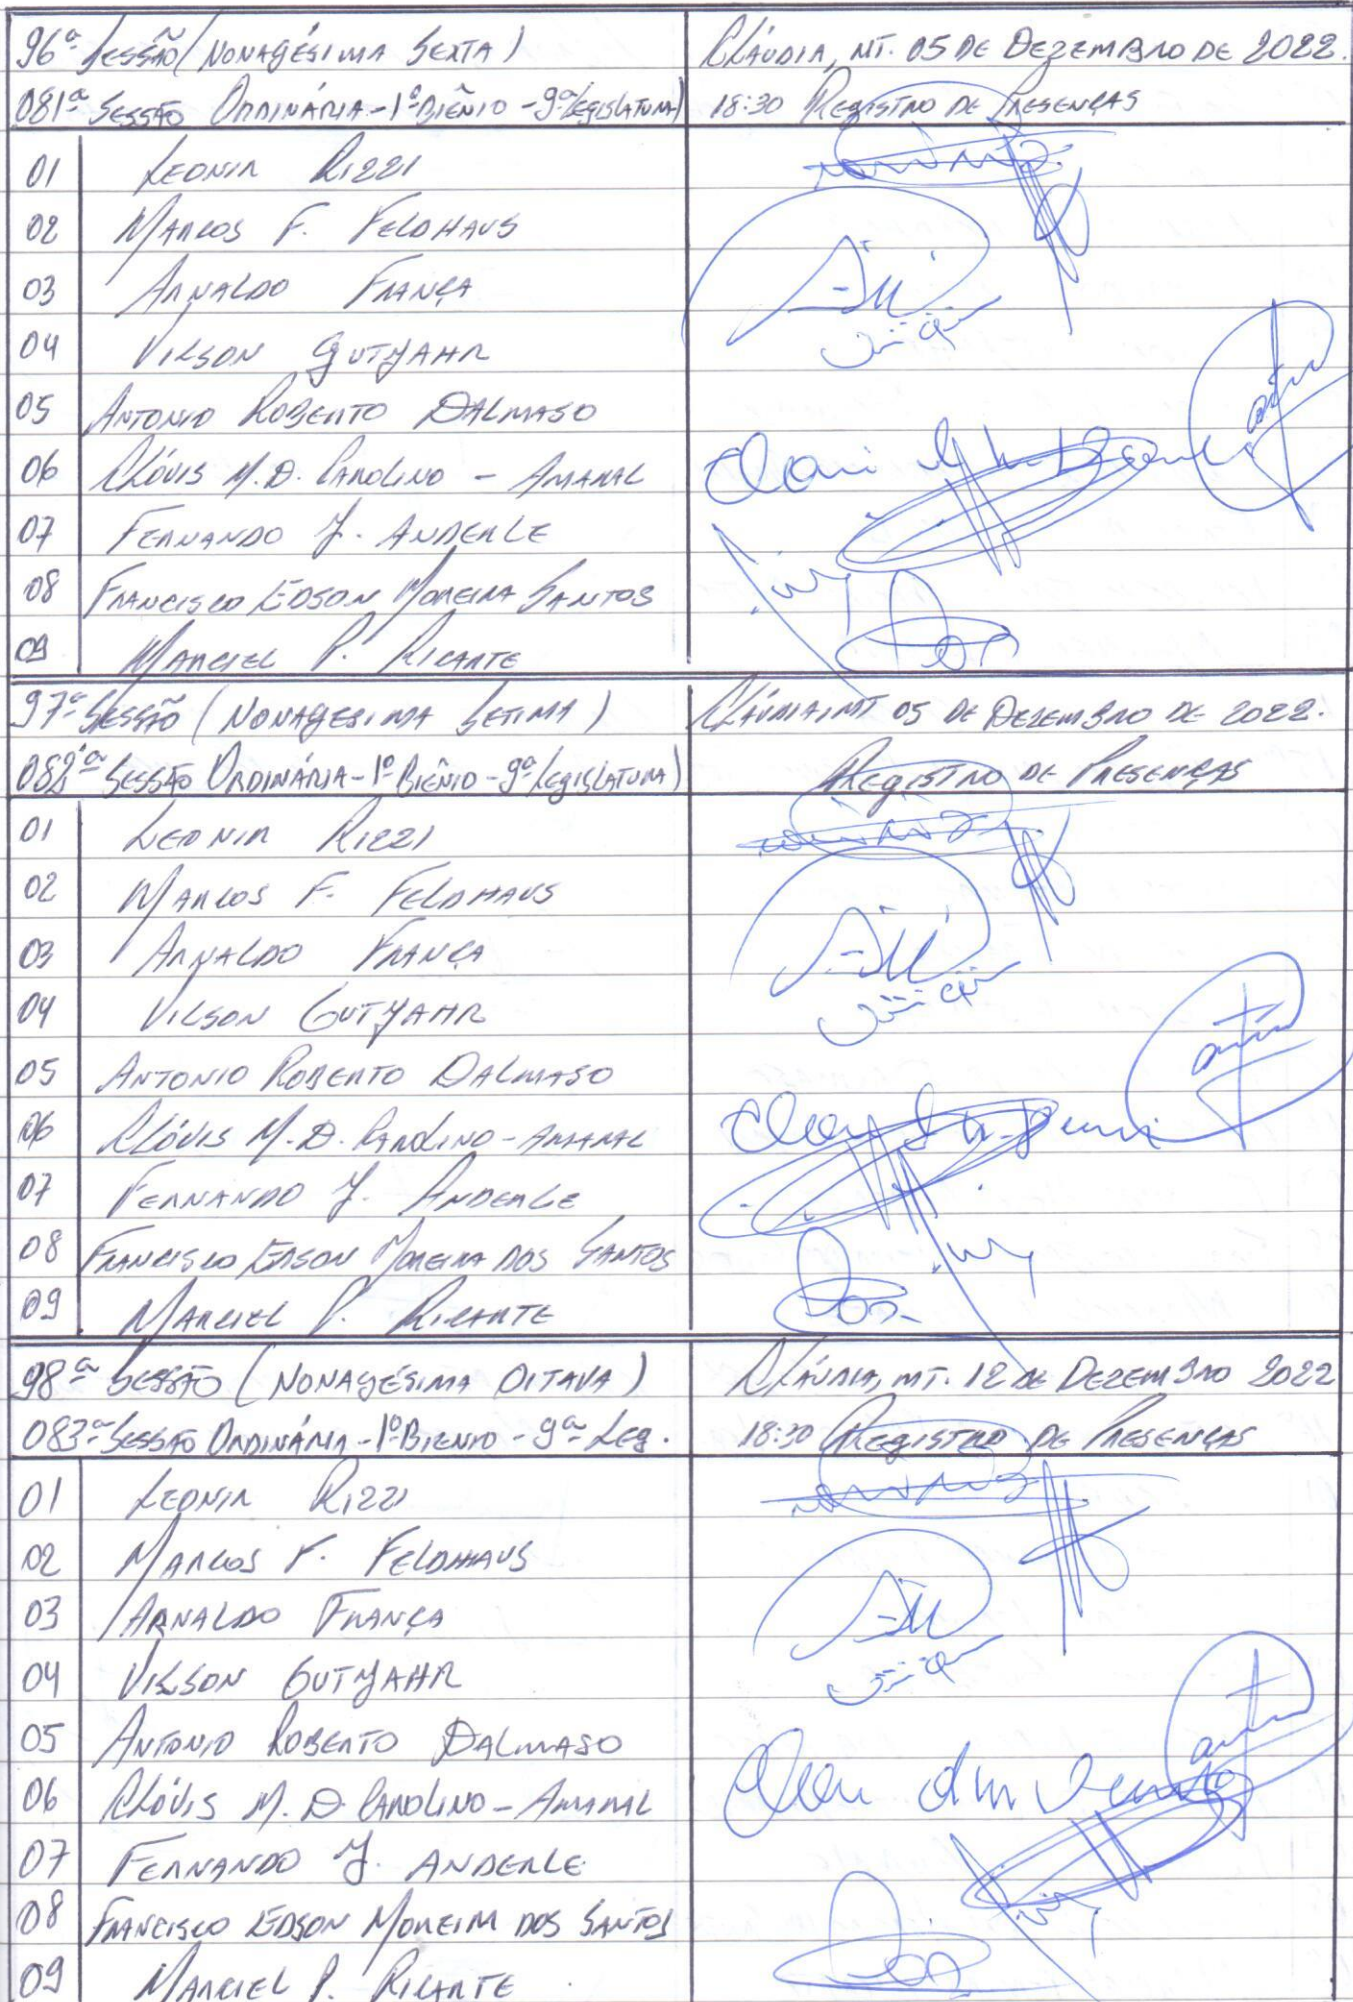 96ª Sessão (Nonagésima Sexta) Cláudia, MT. 05 de Dezembro de 2022.
081ª Sessão Ordinária - 1º Biênio - 9ª Legislatura) 18:30 Registro de Presenças
01 Leonir Rizzi
02 Marcos F. Feldhaus
03 Arnaldo França
04 Vilson Gutjahr
05 Antonio Roberto Dalmaso
06 Clóvis M.D. Carolino - Amaral
07 Fernando J. Anderle
08 Francisco Edson Moreira Santos
09 Marciel P. Ricarte
97ª Sessão (Nonagesima Setima) Cláudia, MT 05 de Dezembro de 2022.
082ª Sessão Ordinária - 1º Biênio - 9ª Legislatura) Registro de Presenças
01 Leonir Rizzi
02 Marcos F. Feldhaus
03 Arnaldo França
04 Vilson Gutjahr
05 Antonio Roberto Dalmaso
06 Clóvis M.D. Carolino - Amaral
07 Fernando J. Anderle
08 Francisco Edson Moreira dos Santos
09 Marciel P. Ricarte
98ª Sessão (Nonagésima Oitava) Cláudia, MT. 12 de Dezembro 2022
083ª Sessão Ordinária - 1º Biênio - 9ª Leg. 18:30 Registro de Presenças
01 Leonir Rizzi
02 Marcos F. Feldhaus
03 Arnaldo França
04 Vilson Gutjahr
05 Antonio Roberto Dalmaso
06 Clóvis M.D. Carolino - Amaral
07 Fernando J. Anderle
08 Francisco Edson Moreira dos Santos
09 Marciel P. Ricarte